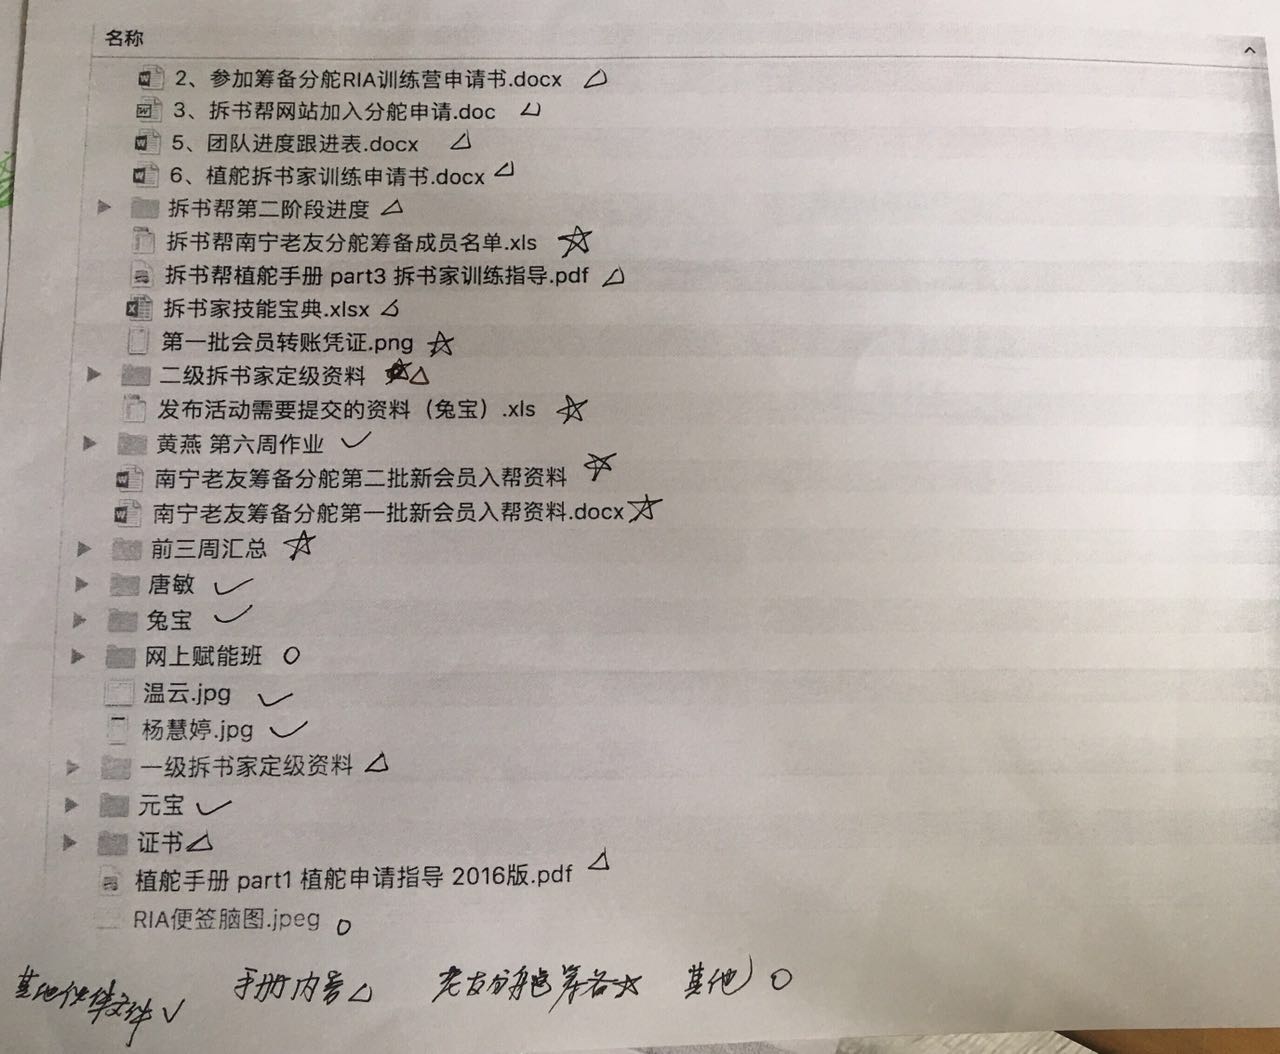 名称
2、参加筹备分舵RIA训练营申请书.docx △
3、拆书帮网站加入分舵申请.doc △
5、团队进度跟进表.docx △
6、植舵拆书家训练申请书.docx △
拆书帮第二阶段进度 △
拆书帮南宁老友分舵筹备成员名单.xls ☆
拆书帮植舵手册 part3 拆书家训练指导.pdf △
拆书家技能宝典.xlsx △
第一批会员转账凭证.png ☆
二级拆书家定级资料 △
发布活动需要提交的资料（兔宝）.xls ☆
黄燕 第六周作业 ✓
南宁老友筹备分舵第二批新会员入帮资料 ☆
南宁老友筹备分舵第一批新会员入帮资料.docx ☆
前三周汇总 ☆
唐敏 ✓
兔宝 ✓
网上赋能班 ○
温云.jpg ✓
杨慧婷.jpg ✓
一级拆书家定级资料 △
元宝 ✓
证书 △
植舵手册 part1 植舵申请指导 2016版.pdf △
RIA便签脑图.jpeg ○
其他伙伴文件 ✓ 手册内号 △ 老友分舵筹备 ☆ 其他 ○